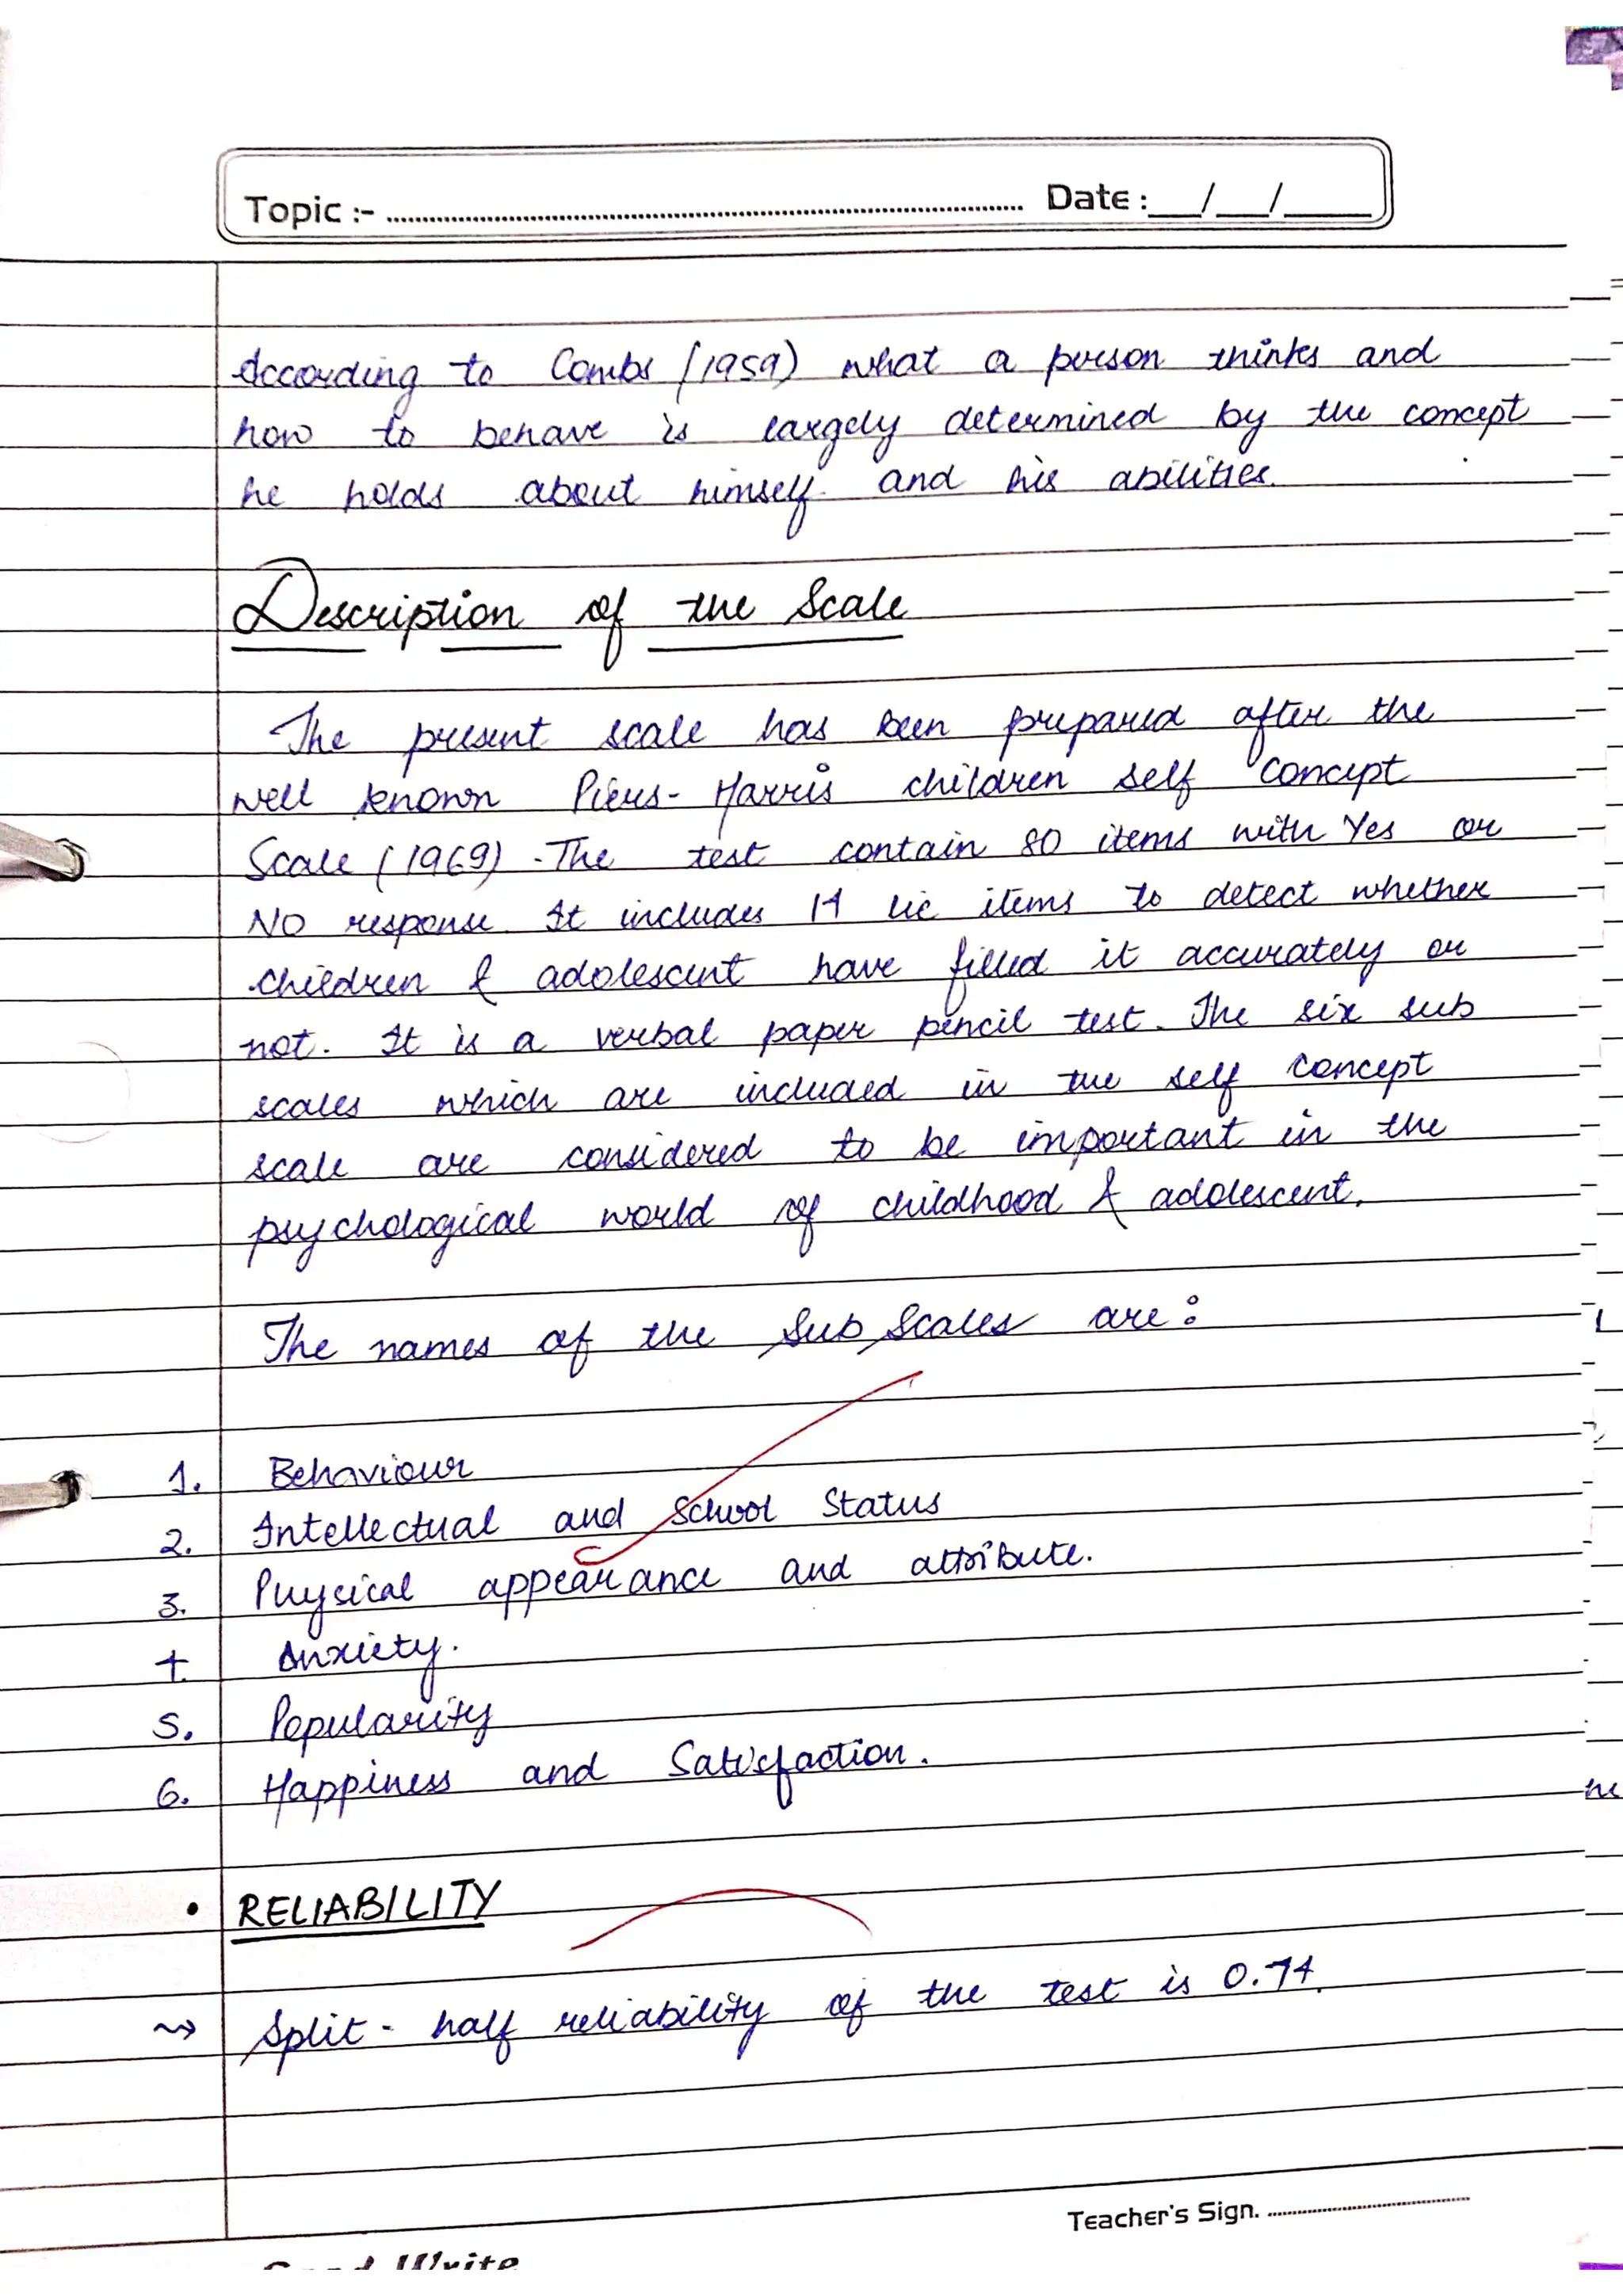 Topic :- Date : __/__/____
According to Combs (1959) what a person thinks and
how to behave is largely determined by the concept
he holds about himself and his abilities.
Description of the Scale
The present scale has been prepared after the
well known Piers-Harris children self concept
Scale (1969). The test contain 80 items with Yes or
NO response. It includes 14 lie items to detect whether
children & adolescent have filled it accurately or
not. It is a verbal paper pencil test. The six sub
scales which are included in the self concept
scale are considered to be important in the
psychological world of childhood & adolescent.
The names of the Sub Scales are:
1. Behaviour
2. Intellectual and School Status
3. Physical appearance and attribute.
4. Anxiety.
5. Popularity
6. Happiness and Satisfaction.
• RELIABILITY
⇝ Split-half reliability of the test is 0.74.
Teacher's Sign.